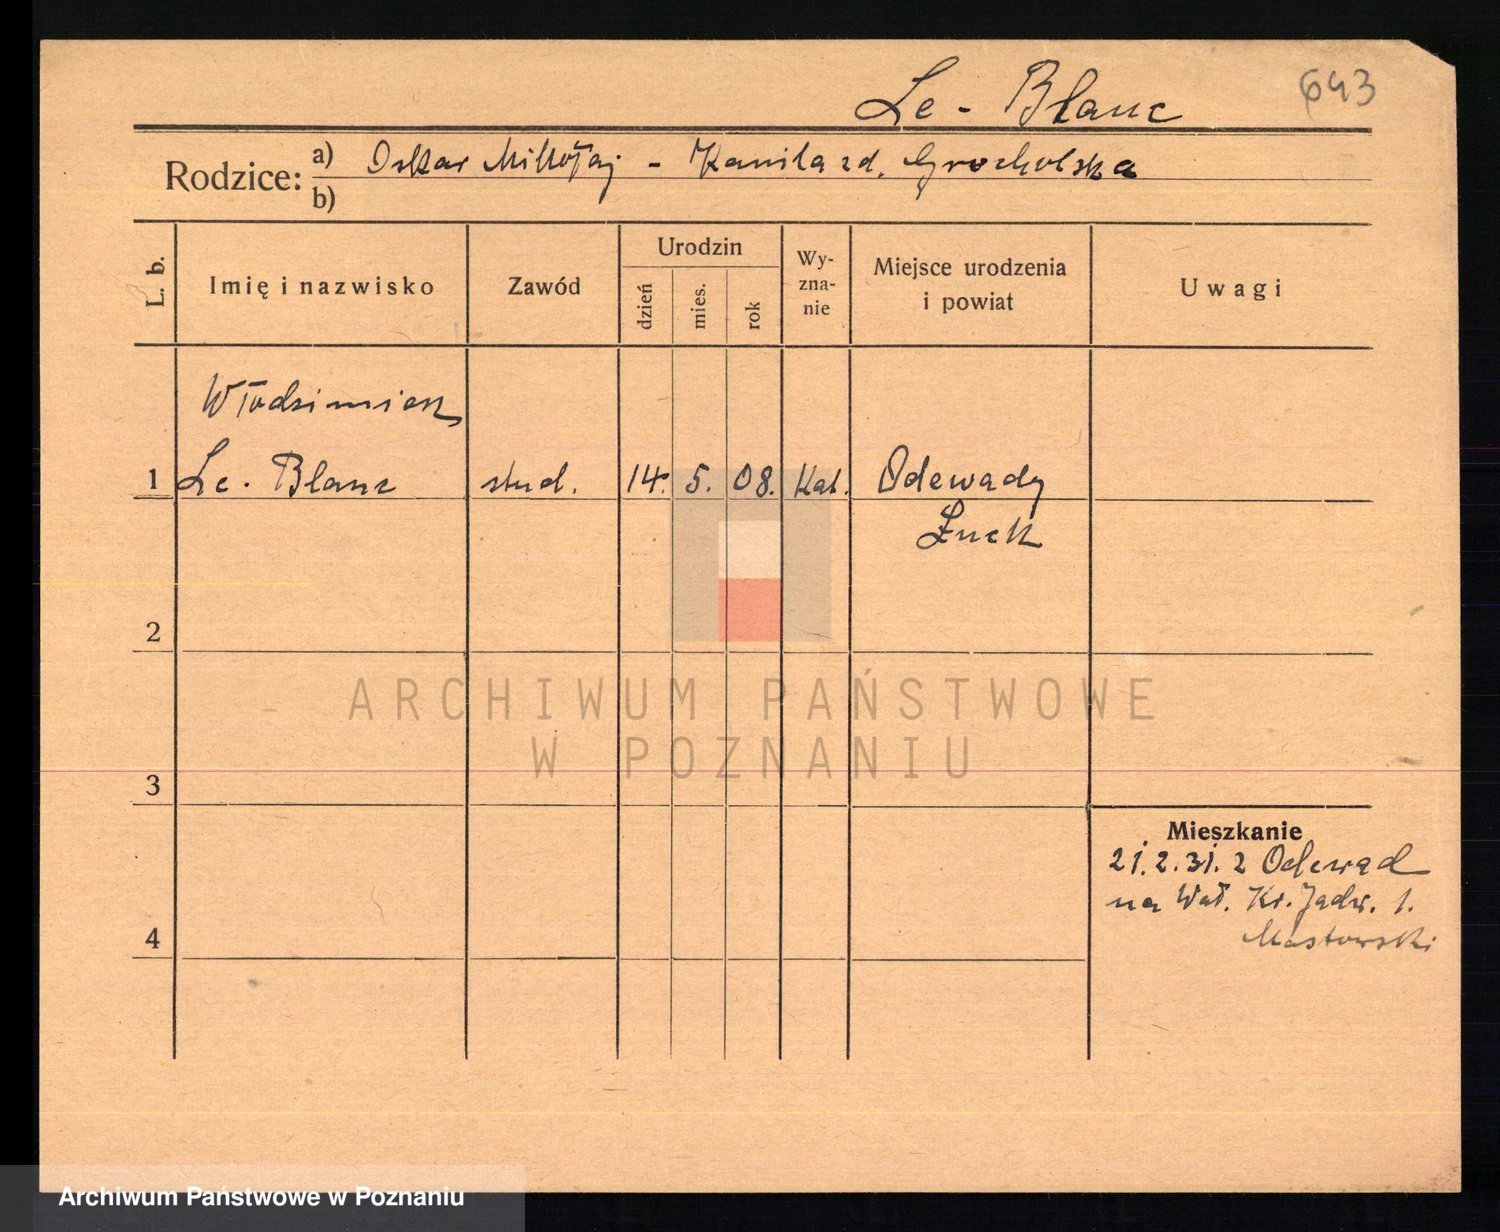 Le - Blanc
643
Rodzice: a) Oskar Mikołaj - Kamila zd. Grocholska
b)
L. b.
Imię i nazwisko
Zawód
Urodzin
dzień
mies.
rok
Wy-
zna-
nie
Miejsce urodzenia
i powiat
Uwagi
Włodzimierz
1 Le - Blanc stud. 14. 5. 08. Kat. Odewady
Łuck
2
3
4
Mieszkanie
21.2.31. z
na Wał. Kr. Jadw. 1.
Masłowski
ARCHIWUM PAŃSTWOWE
W POZNANIU
Archiwum Państwowe w Poznaniu